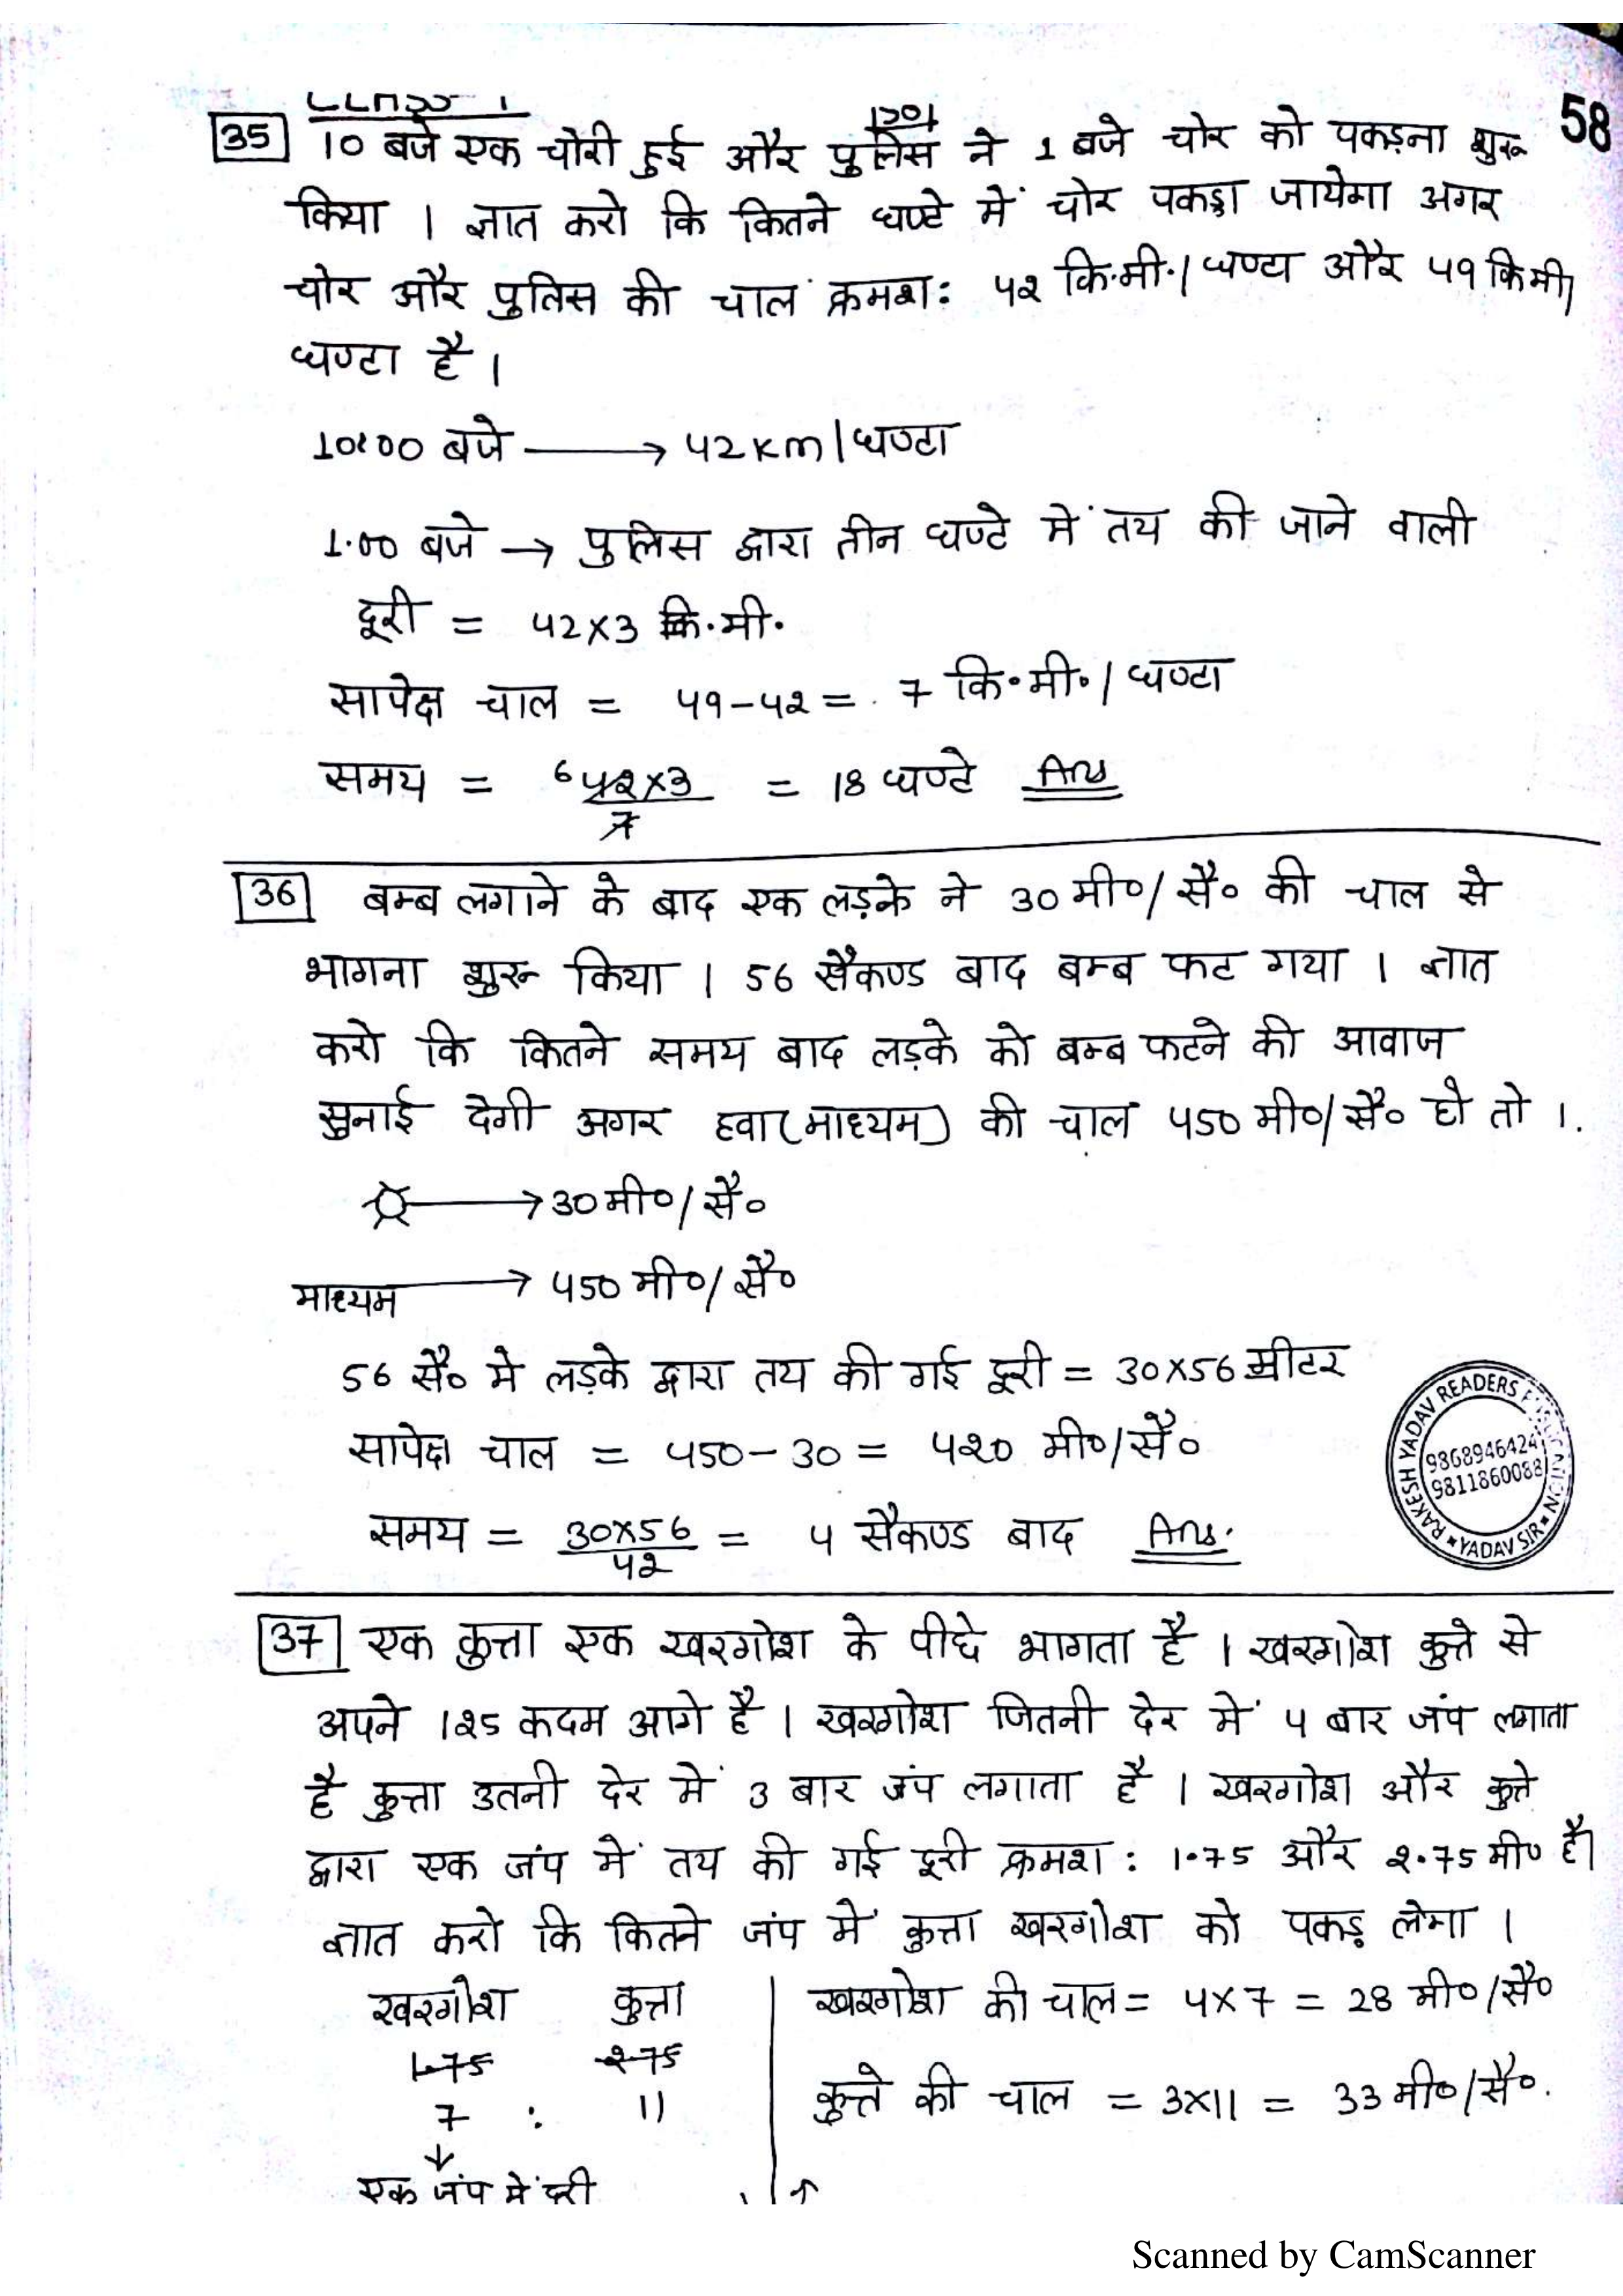 58
35 10 बजे एक चोरी हुई और पुलिस ने 1 बजे चोर को पकड़ना शुरू
किया । ज्ञात करो कि कितने घण्टे में चोर पकड़ा जायेगा अगर
चोर और पुलिस की चाल क्रमशः 42 कि.मी./घण्टा और 49 किमी/
घण्टा है ।
10:00 बजे → 42 Km/घण्टा
1.00 बजे → पुलिस द्वारा तीन घण्टे में तय की जाने वाली
दूरी = 42×3 कि.मी.
सापेक्ष चाल = 49-42 = 7 कि.मी./घण्टा
समय = 6 42×3 / 7 = 18 घण्टे Ans
36 बम्ब लगाने के बाद एक लड़के ने 30 मी०/सै० की चाल से
भागना शुरू किया । 56 सैकण्ड बाद बम्ब फट गया । ज्ञात
करो कि कितने समय बाद लड़के को बम्ब फटने की आवाज
सुनाई देगी अगर हवा (माध्यम) की चाल 450 मी०/सै० हो तो ।
→ 30 मी०/सै०
माध्यम → 450 मी०/सै०
56 सै० मे लड़के द्वारा तय की गई दूरी = 30×56 मीटर
सापेक्ष चाल = 450-30 = 420 मी०/सै०
समय = 30×56 / 42 = 4 सैकण्ड बाद Ans.
RAKESH YADAV READERS PUBLICATION
9868946424
9811860088
YADAV SIR
37 एक कुत्ता एक खरगोश के पीछे भागता है । खरगोश कुत्ते से
अपने 125 कदम आगे है । खरगोश जितनी देर में 4 बार जंप लगाता
है कुत्ता उतनी देर में 3 बार जंप लगाता है । खरगोश और कुत्ते
द्वारा एक जंप में तय की गई दूरी क्रमश: 1.75 और 2.75 मी० है।
ज्ञात करो कि कितने जंप में कुत्ता खरगोश को पकड़ लेगा ।
खरगोश कुत्ता
1.75 2.75
7 : 11
↓
एक जंप में दूरी
खरगोश की चाल = 4×7 = 28 मी०/सै०
कुत्ते की चाल = 3×11 = 33 मी०/सै०.
Scanned by CamScanner